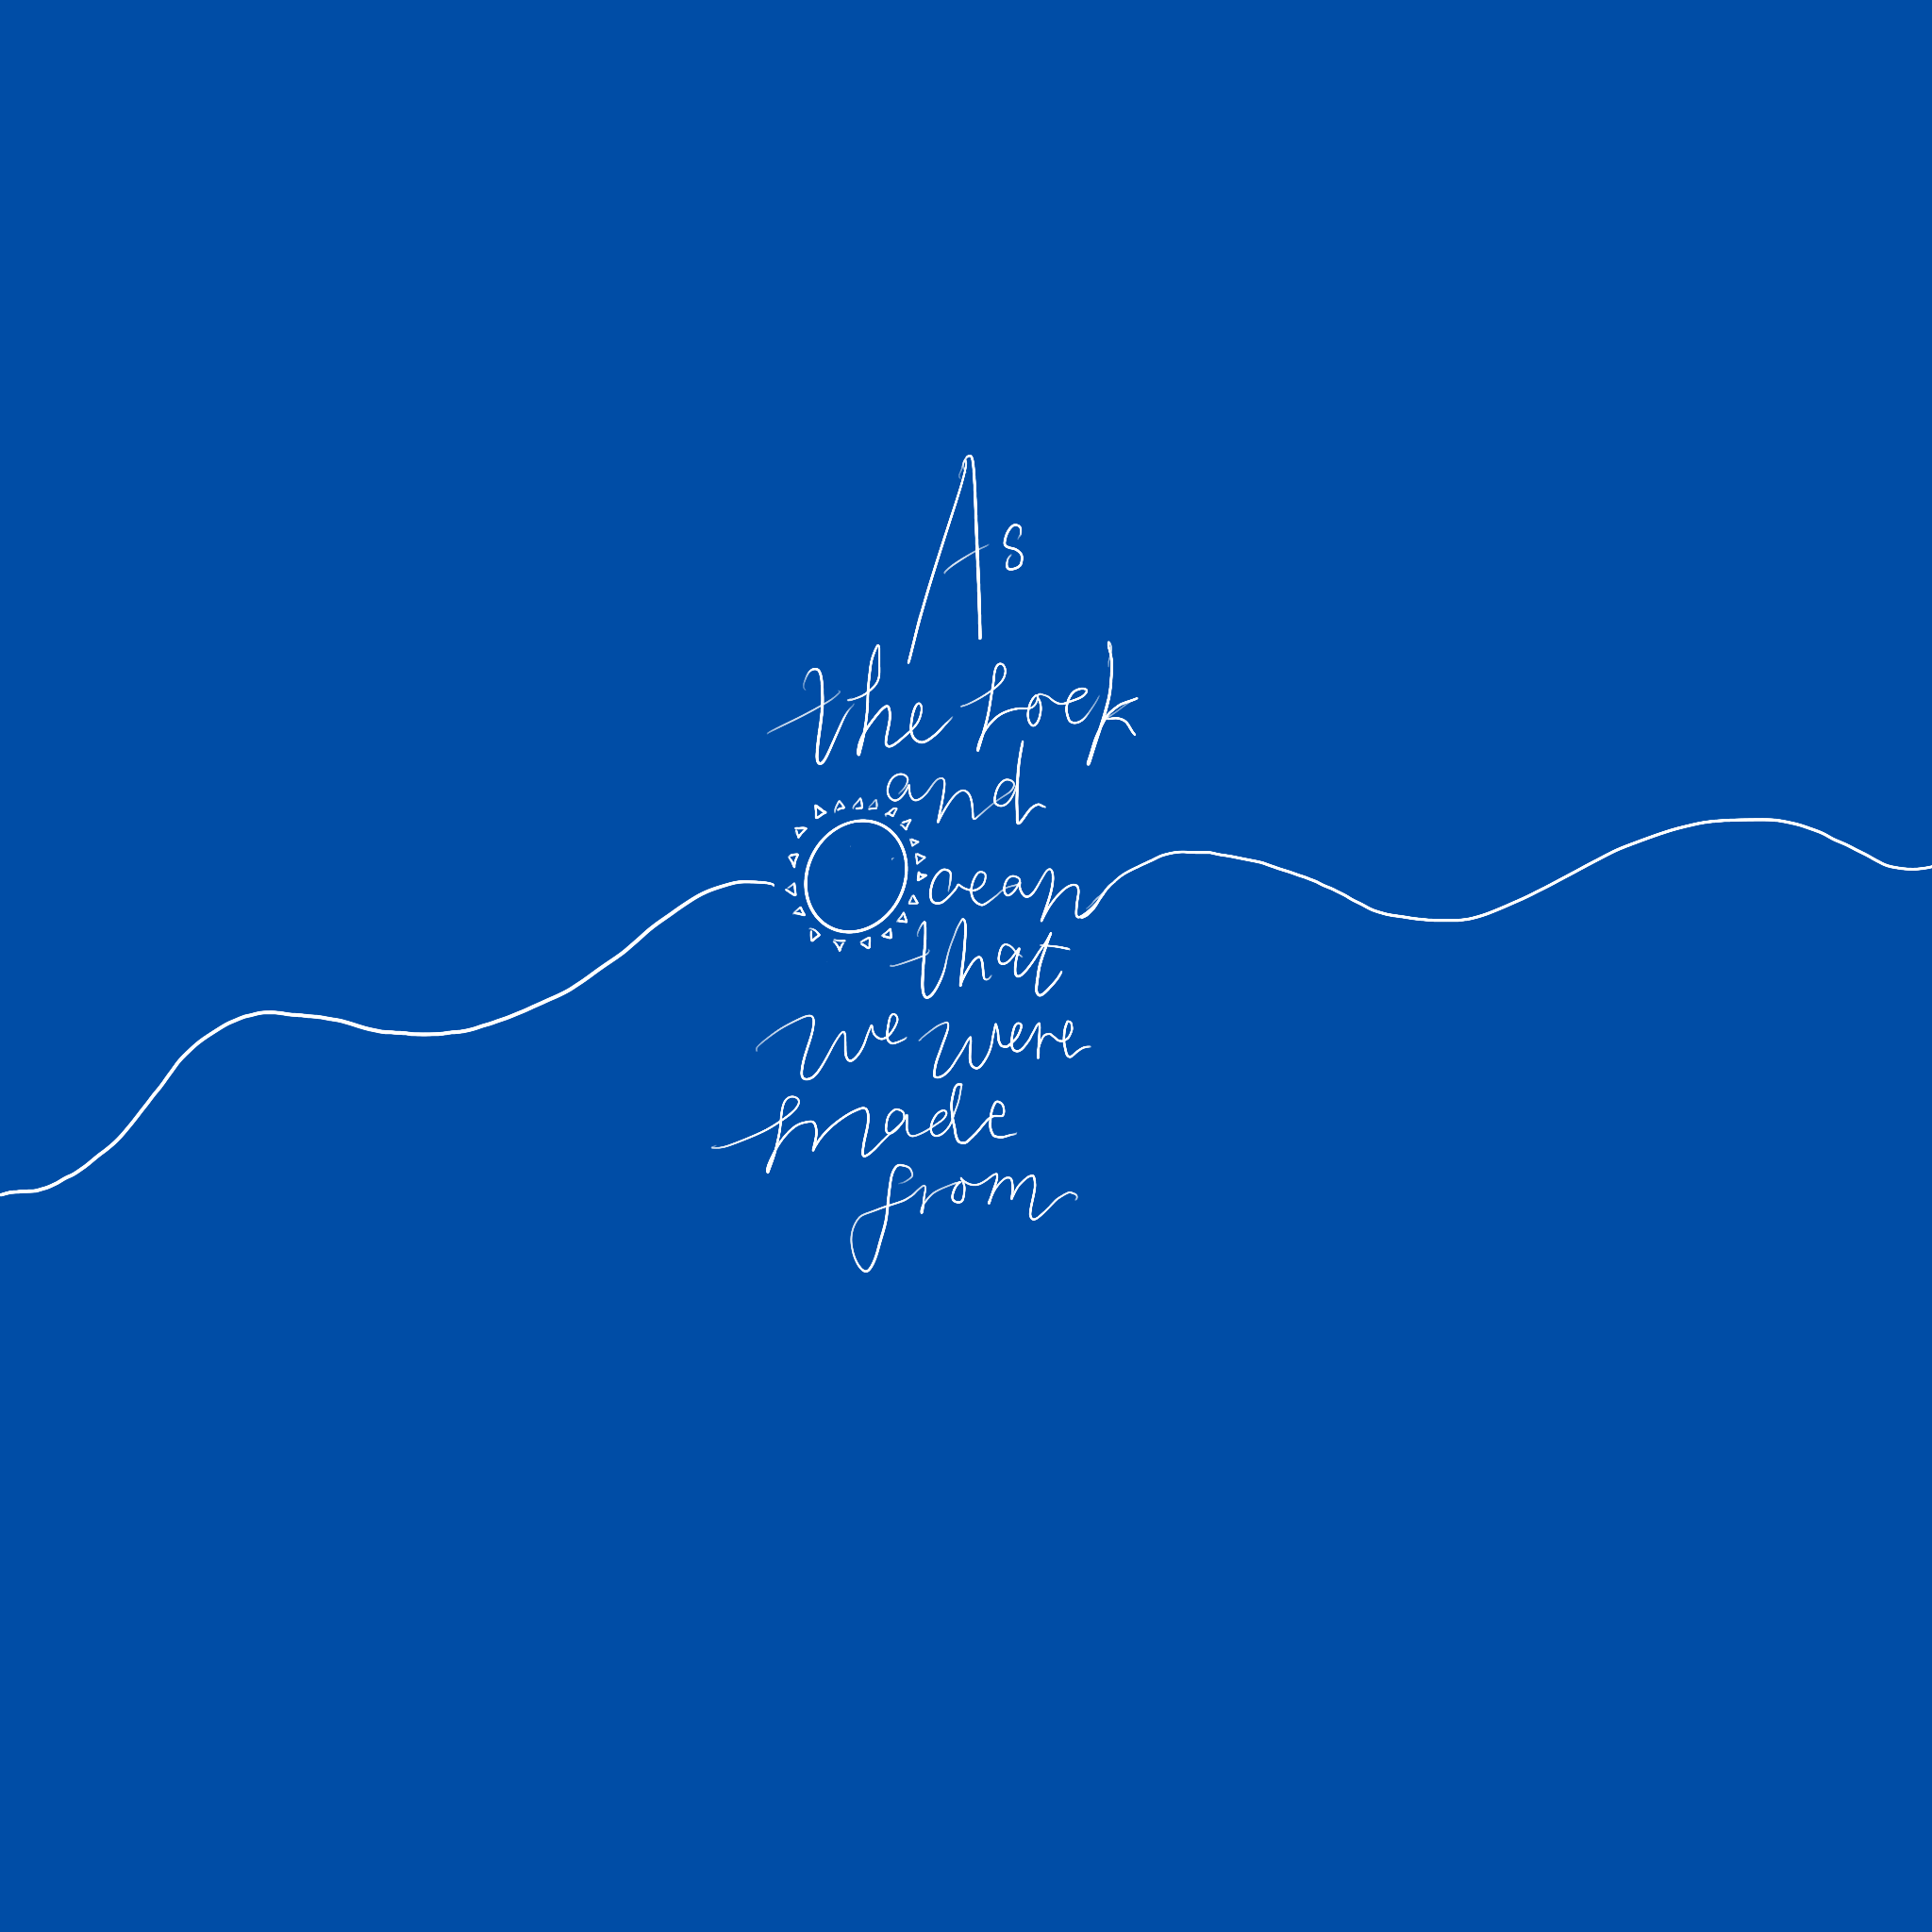 As
the rock
and
Ocean
that
we were
made
from